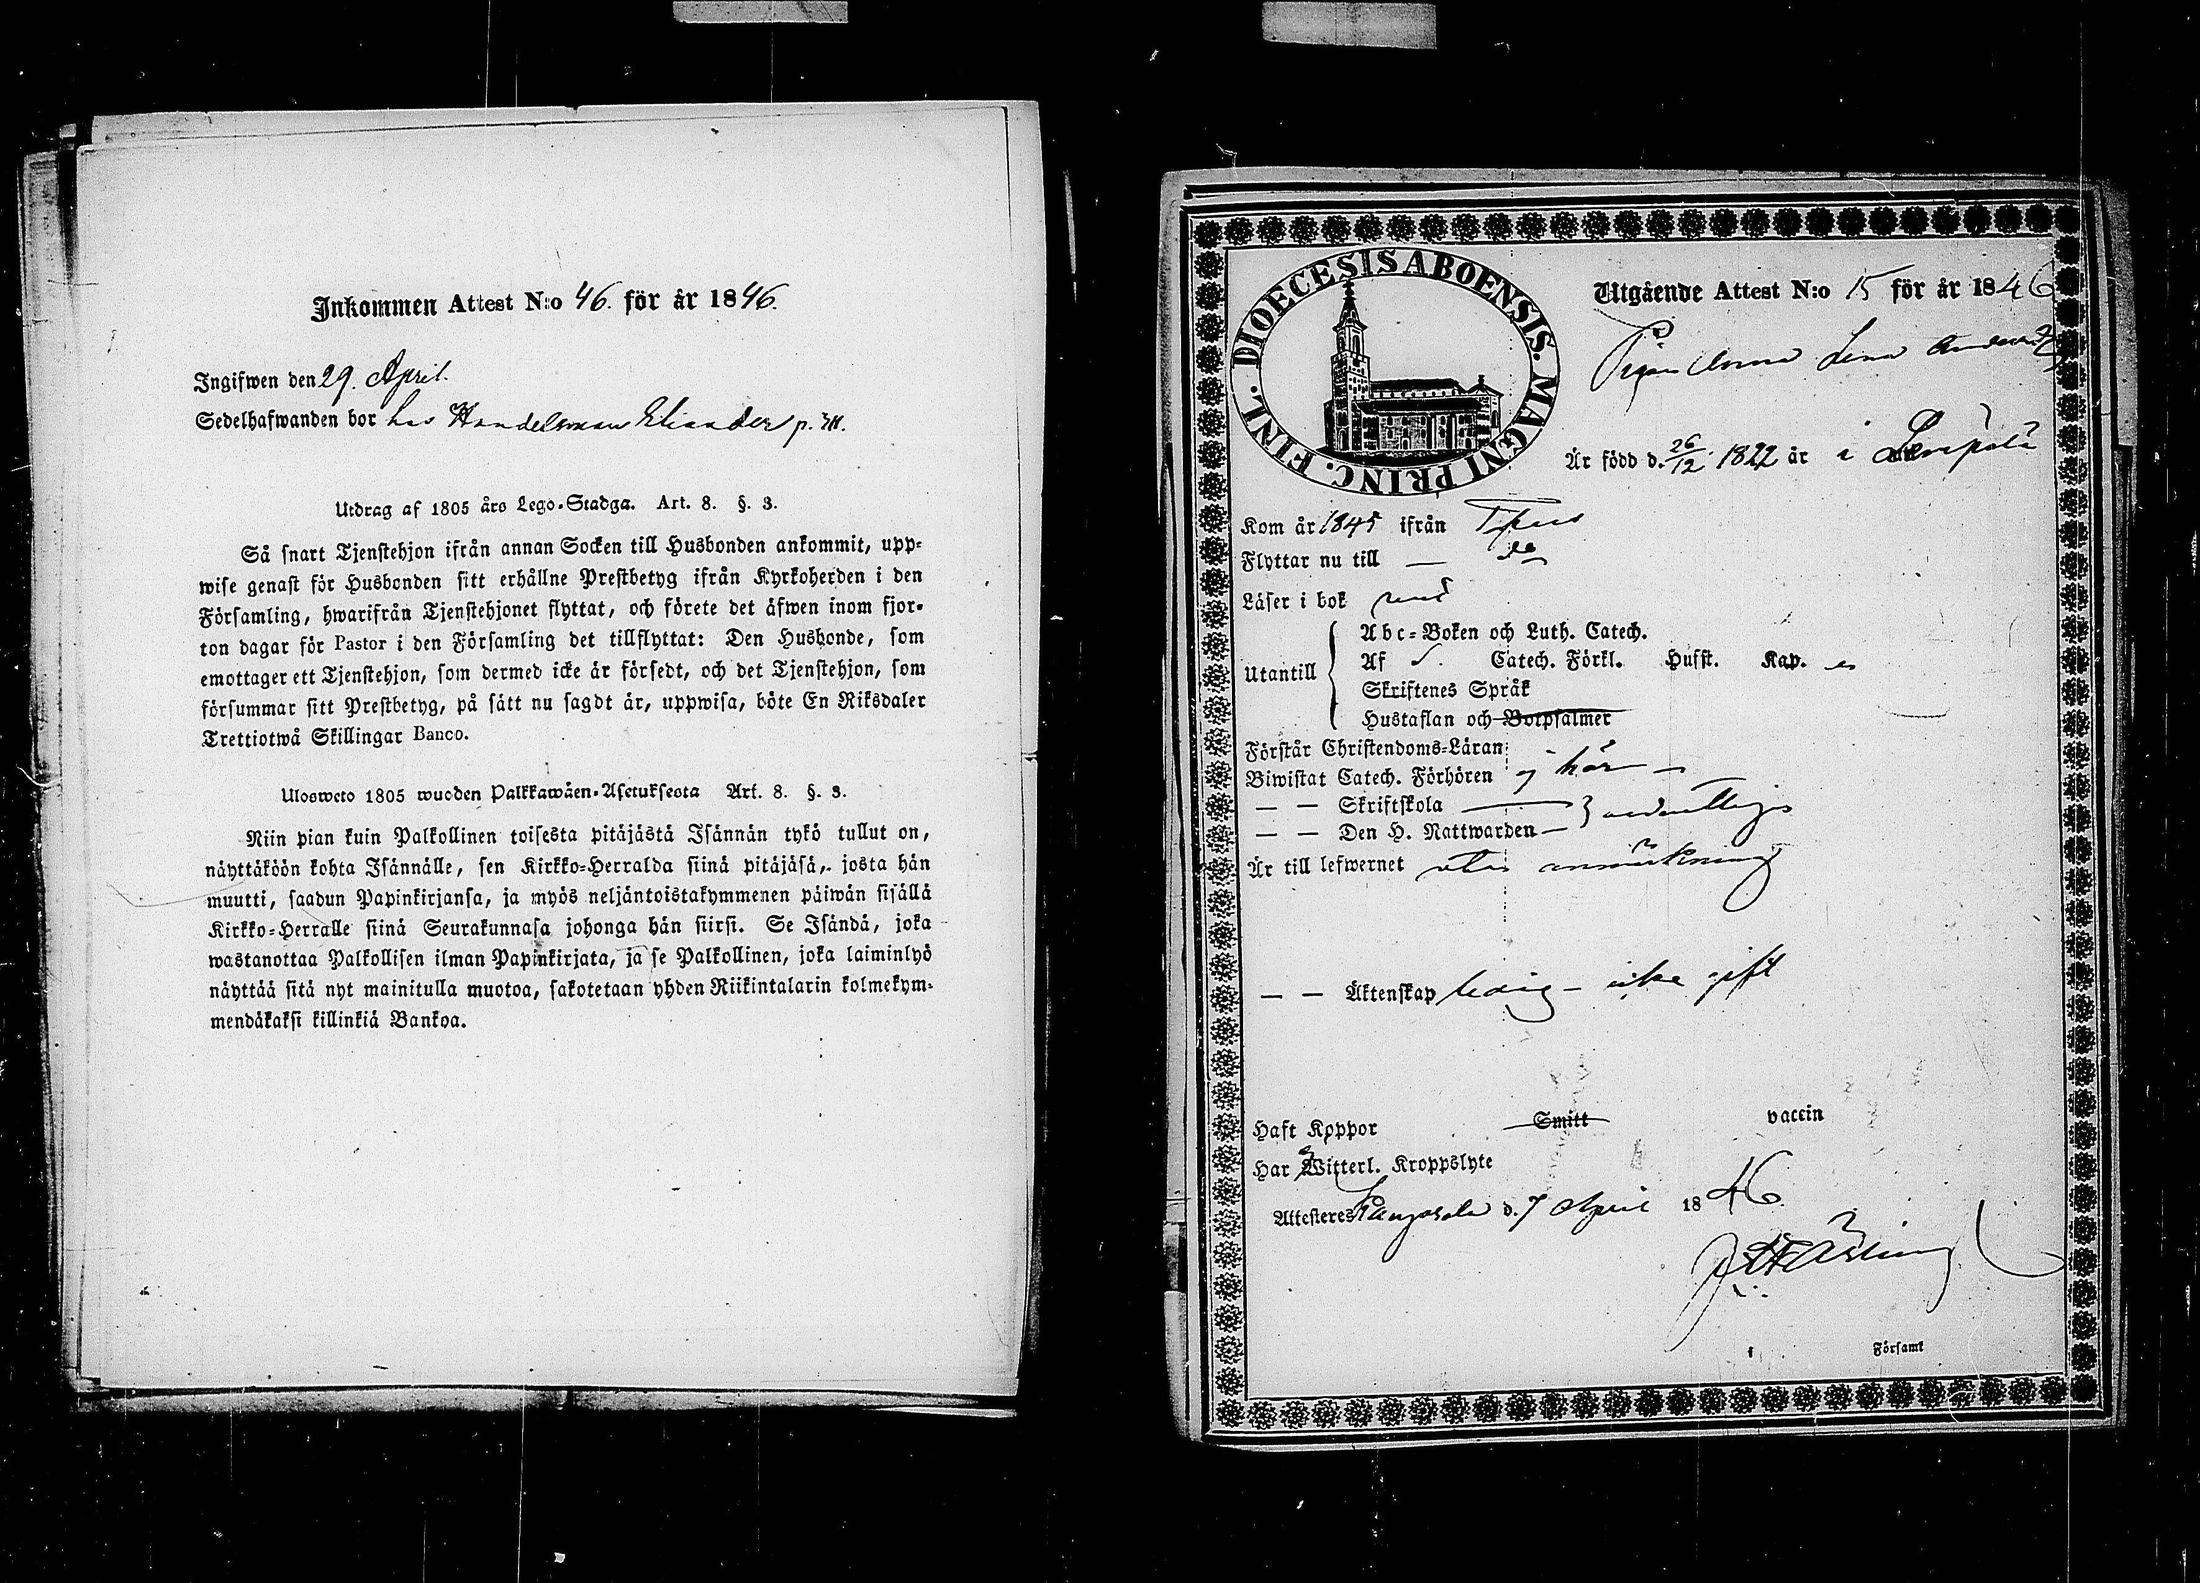 Inkommen Attest N:o 46. för år 1846.
Ingifwen den 29. April.
Sedelhafwanden bor hos Handelsman Eliander p. 311.
Utdrag af 1805 års Lego-Stadga. Art. 8. §. 3.
Så snart Tjenstehjon ifrån annan Socken till Husbonden ankommit, upp-
wise genast för Husbonden sitt erhållne Prestbetyg ifrån Kyrkoherden i den
Församling, hwarifrån Tjenstehjonet flyttat, och förete det äfwen inom fjor-
ton dagar för Pastor i den Församling det tillflyttat: Den Husbonde, som
emottager ett Tjenstehjon, som dermed icke är försedt, och det Tjenstehjon, som
försummar sitt Prestbetyg, på sätt nu sagdt är, uppwisa, böte En Riksdaler
Trettiotwå Skillingar Banco.
Ulosweto 1805 wuoden Palkkawäen-Asetuksesta Art. 8. §. 3.
Niin pian kuin Palkollinen toisesta pitäjästä Isännän tykö tullut on,
näyttäköön kohta Isännälle, sen Kirkko-Herralda siinä pitäjäsä, josta hän
muutti, saadun Papinkirjansa, ja myös neljäntoistakymmenen päiwän sisällä
Kirkko-Herralle siinä Seurakunnasa johonga hän siirsi. Se Isändä, joka
wastanottaa Palkollisen ilman Papinkirjata, ja se Palkollinen, joka laiminlyö
näyttää sitä nyt mainitulla muotoa, sakotetaan yhden Riikintalarin kolmekym-
mendäkaksi killinkiä Bankoa.
DIOECESIS ABOENSIS. MAGNI PRINC. FINL.
Utgående Attest N:o 15 för år 1846
Pigan Anna Lena
Är född d. 26/12 1822 år i
Kom år 1845 ifrån
Flyttar nu till —
Läser i bok
Utantill
Abc-Boken och Luth. Catech.
Af Catech. Förkl. Husst. Kap.
Skriftenes Språk
Hustaflan och Botpsalmer
Förstår Christendoms-Läran
Biwistat Catech. Förhören ej här —
— — Skriftskola
— — Den H. Nattwarden — ordentligt
Är till lefwernet utan anmärkning
— — Äktenskap ledig – icke gift
Haft Koppor Smitt vaccin
Har ej Witterl. Kroppslyte
Attesteres Kangasala d. 7 April 1846.
Församl